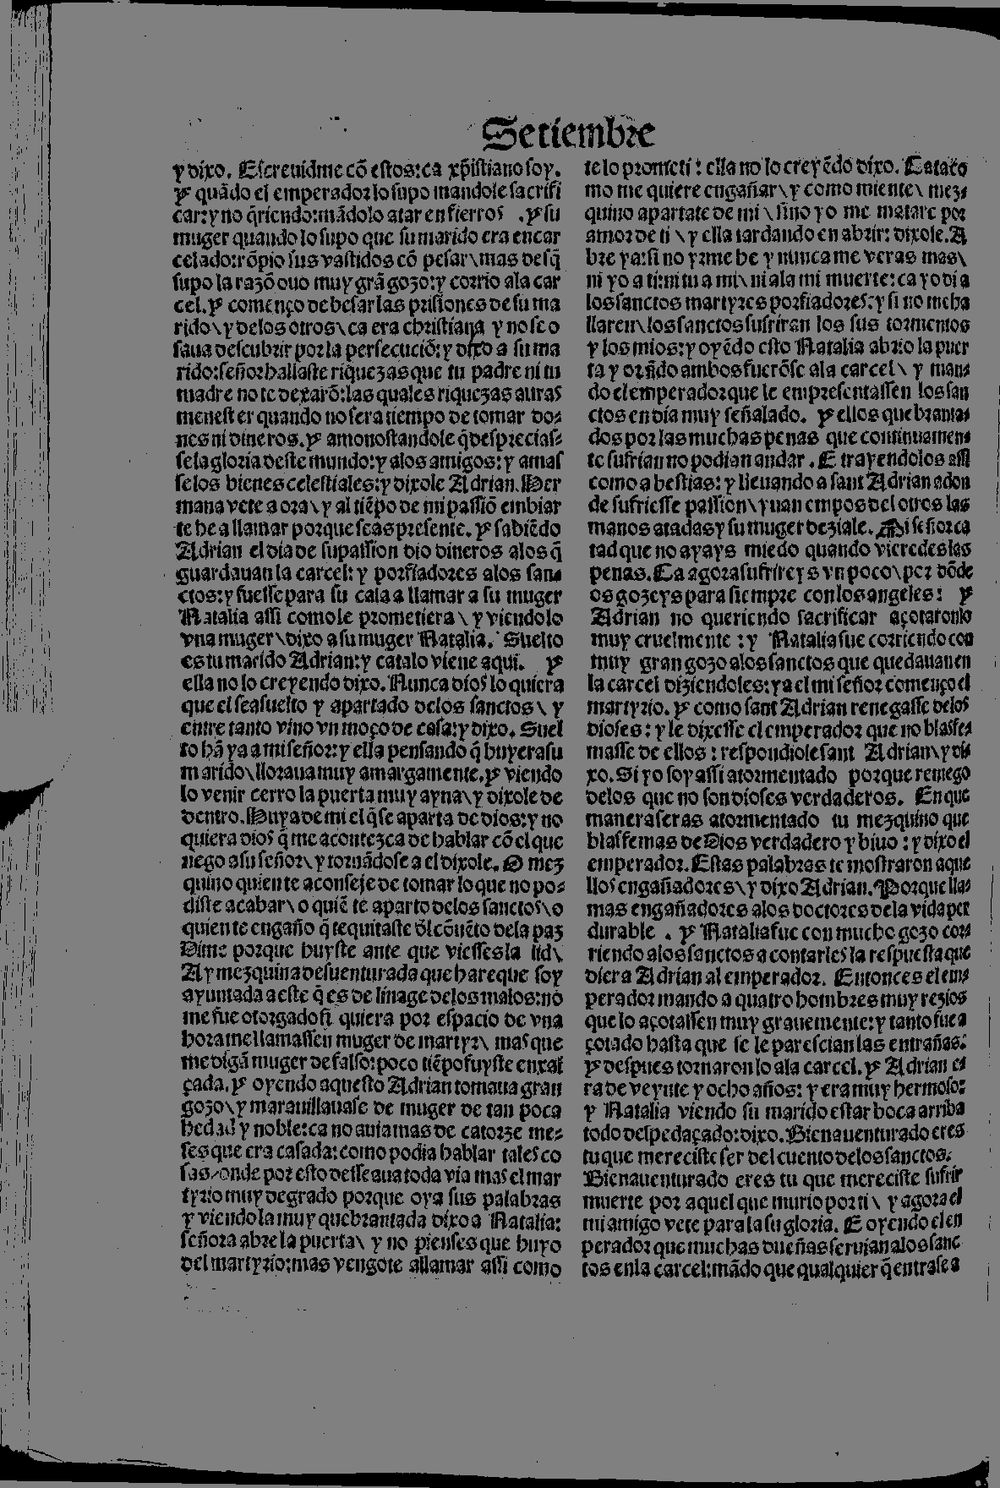 Setiembre
y dixo. Escreuidme cõ estos: ca xp̃istiano soy.
Y quãdo el emperador lo supo mandole sacrifi
car: y no q̃riendo: mãdolo atar en fierros. Y su
muger quando lo supo que su marido era encar
celado: rõpio sus vastidos cõ pesar \ mas desq̃
supo la razõ ouo muy grã gozo: y corrio ala car
cel. Y començo de besar las prisiones de su ma
rido \ y delos otros \ ca era christiana y no se o
saua descubrir por la persecuciõ: y dixo a su ma
rido: señor hallaste riquezas que tu padre ni tu
madre no te dexarõ: las quales riquezas auras
menester quando no sera tiempo de tomar do-
nes ni dineros. Y amonostandole q̃ desprecias-
se la gloria deste mundo: y alos amigos: y amas
se los bienes celestiales: y dixole Adrian. Her
mana vete a ora \ y al tiẽpo de mi passiõ embiar
te he a llamar porque seas presente. Y sabiẽdo
Adrian el dia de su passion dio dineros alos q̃
guardauan la carcel: y porfiadores alos san-
ctos: y fuesse para su casa a llamar a su muger
Natalia assi como le prometiera \ y viendolo
vna muger \ dixo a su muger Natalia. Suelto
es tu marido Adrian: y catalo viene aqui. Y
ella no lo creyendo dixo. Nunca dios lo quiera
que el sea suelto y apartado delos sanctos \ y
entre tanto vino vn moço de casa: y dixo. Suel
to hã ya a mi señor: y ella pensando q̃ huyera su
marido \ lloraua muy amargamente. Y viendo
lo venir cerro la puerta muy ayna \ y dixole de
dentro. Huya de mi el q̃ se aparta de dios: y no
quiera dios q̃ me acontezca de hablar cõ el que
nego a su señor \ y tornãdose a el dixole. O mez
quino quien te aconseje de tomar lo que no po-
diste acabar \ o quiẽ te aparto delos sanctos \ o
quien te engaño q̃ te quitaste dl̃ cõuẽto dela paz
Dime porque huyste ante que viesses la lid \
Ay mezquina desuenturada que hare que soy
ayuntada a este q̃ es de linage delos malos: no
me fue otorgado si quiera por espacio de vna
hora me llamassen muger de martyr \ mas que
me digã muger de falso: poco tiẽpo fuyste enxal
çada. Y oyendo aquesto Adrian tomaua gran
gozo \ y marauillauase de muger de tan poca
hedad y noble: ca no auia mas de catorze me-
ses que era casada: como podia hablar tales co
sas / onde por esto desseaua toda via mas el mar
tyrio muy de grado porque oya sus palabras
y viendola muy quebrantada dixo a Natalia:
señora abre la puerta \ y no pienses que huyo
del martyrio: mas vengote allamar assi como
te lo prometi: ella no lo creyẽdo dixo. Catato
mo me quiere engañar \ y como miente \ mez-
quino apartate de mi \ sino yo me matare por
amor de ti \ y ella tardando en abrir: dixole. A
bre ya: si no yrme he y nunca me veras mas \
ni yo a ti: ni tu a mi \ ni ala mi muerte: ca yo di a
los sanctos martyres porfiadores: y si no me ha
llaren \ los sanctos sufriran los sus tormentos
y los mios: y oyẽdo esto Natalia abrio la puer
ta y orãdo ambos fuerõse ala carcel \ y man-
do el emperador que le empresentassen los san
ctos en dia muy señalado. Y ellos que branta-
dos por las muchas penas que continuamen-
te sufrian no podian andar. E trayendolos assi
como a bestias: y lleuando a sant Adrian adon
de sufriesse passion \ yuan empos del otros las
manos atadas y su muger deziale. Mi señor ca
tad que no ayays miedo quando vieredes las
penas. Ca agora sufrireys vn poco \ por dõde
os gozeys para siempre con los angeles: Y
Adrian no queriendo sacrificar açotaronlo
muy cruelmente: y Natalia fue corriendo con
muy gran gozo alos sanctos que quedauan en
la carcel diziendoles: ya el mi señor començo el
martyrio. Y como sant Adrian renegasse delos
dioses: y le dixesse el emperador que no blasfe-
masse de ellos: respondiole sant Adrian \ y di-
xo. Si yo soy assi atormentado porque reniego
delos que no son dioses verdaderos. En que
manera seras atormentado tu mezquino que
blasfemas de Dios verdadero y biuo: y dixo el
emperador. Estas palabras te mostraron aque
llos engañadores \ y dixo Adrian. Porque lla-
mas engañadores alos doctores dela vida per
durable. Y Natalia fue con mucho gozo cor-
riendo alos sanctos a contarles la respuesta que
diera Adrian al emperador. Entonces el em-
perador mando a quatro hombres muy rezios
que lo açotassen muy grauemente: y tanto fue a
çotado hasta que se le parescian las entrañas:
Y despues tornaron lo ala carcel. Y Adrian e-
ra de veynte y ocho años: y era muy hermoso:
y Natalia viendo su marido estar boca arriba
todo despedaçado: dixo. Bienauenturado eres
tu que mereciste ser del cuento delos sanctos.
Bienauenturado eres tu que mereciste sufrir
muerte por aquel que murio por ti \ y agora el
mi amigo vete para la su gloria. E oyendo el en
perador que muchas dueñas seruian alos sanc
tos en la carcel: mãdo que qualquier q̃ entrase a